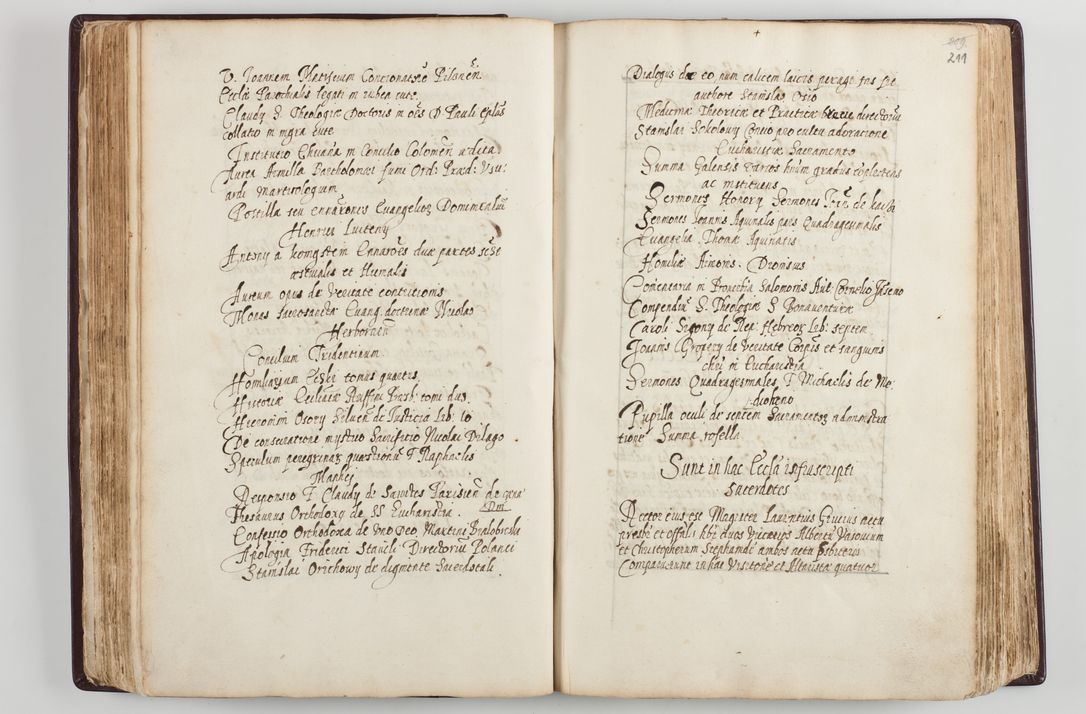 V. Joannem Concionatorē Pilsnēn
Ecclā Parochialis legati in rubea cute.
Claudy S. Theologiæ Doctoris in oēs D Pauli eplās
collatio in nigra cute
Institutio Chrīana in Concilio Colonien ædita
Aurea Armilla Bartholomæi fumi Ord: Præd: Vsu:
ardi Martirologium
Postilla seu ennarōnes Evangelioꝝ Dominicaliū
Henrici
Antony a konigstein Ennarōes duæ partes sct
æstivalis et Hiemalis
Aureum opus de veritate contritionis
Monas sacrosanctæ Evang. doctrinæ Nicolao
Herbornēn
Concilium Tridentinum
Homiliarium Eckii tomus quartus.
Historiæ Eccliasticæ Ruffini tomi duo.
Hieronim Osory de Justicia Lib: 10
De consecratione mystico Sacrificio Nicolai Dilago
Speculum peregrinaꝝ quæstionū F Raphaelis
Responsio F Claudy de Sainctes Parisien de
Thesaurus Orthodoxꝝ de SS Eucharistia.
Confessio Orthodoxa de vno Deo, Martini Bialobrzeski
Apologia Friderici Directoriū Polanci
Stanislai Orichowy de digmente Sacerdotali.
209
211
Dialogus de eo, num calicem laicis
authore Stanislao Osio
Medicinæ Theorica et Practica directoriū
Stanislai Sokolowy Concio pro cultu adoratione
Eucharistiæ Sacramento
Summa Galensis varios hinū gradus cōplectens
ac instituens
Sermones Honory Sermones de
Sermones Joannis Aquinatis pars Quadragesimalis
Evangelia Thomæ Aquinatis
Homiliæ Aimonis. Dionisius
Comentaria in Proverbia Salomonis Aut. Cornelio Jaseno
Compendiū S. Theologiæ S Bonaventuræ
Caroli Sigony de Rep: Hebreoꝝ Lib: septem
Joannis Gropery de veritate Corpis et sanguinis
chri in Eucharistia
Sermones Quadragesimales F Michaelis de Me:
diolano
Pupilla oculi de septem Sacramentoꝝ administra
tione Summa rosella
Sunt in hac Ecclā infrascripti
Sacerdotes
Rector eius est Magister Laurentius
presbr et offālis hr̄t duos Vicarios Albertū Vasovium
et Christopherum ambos actu p̄sbiteros
Comparuerunt in hac Visitōne et Altaristæ quatuor